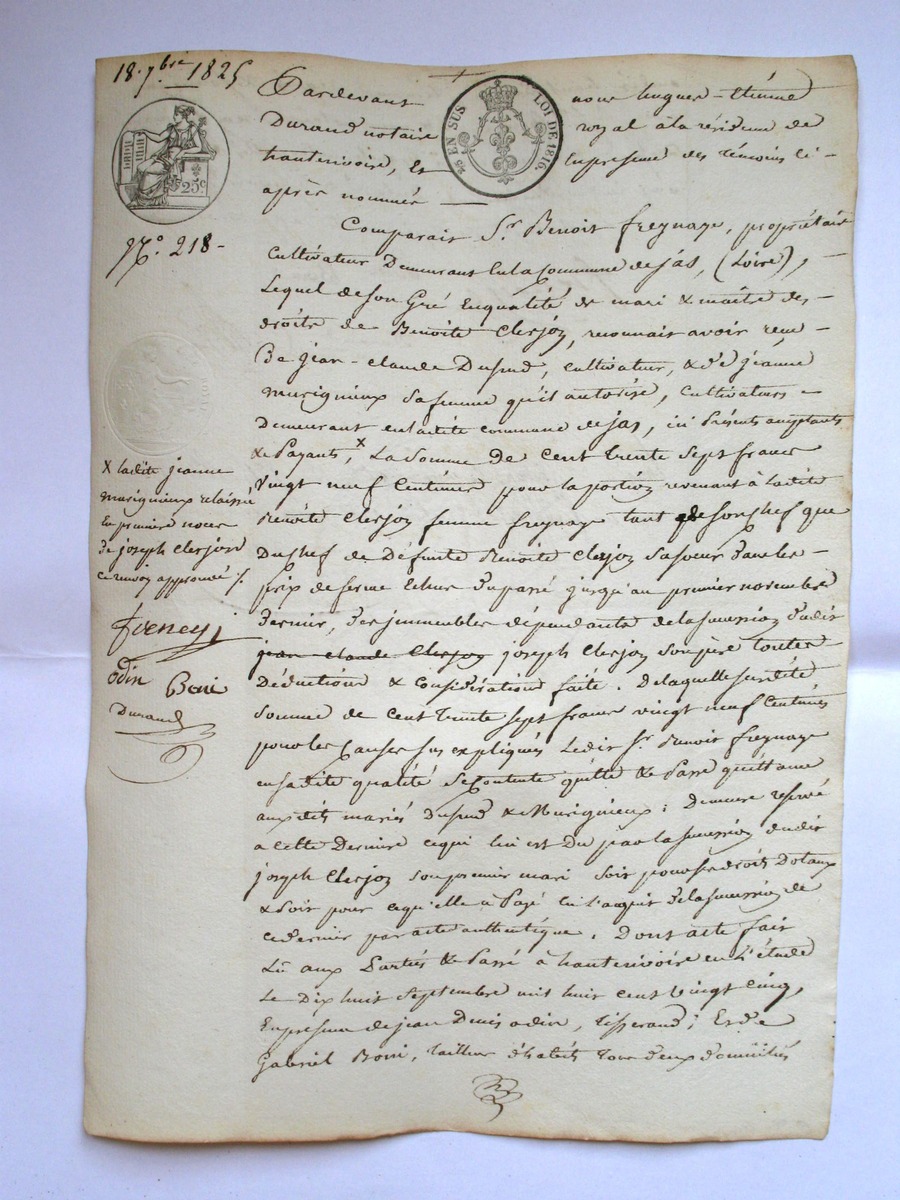 18. 7bre 1825
25c
EN SUS
LOI DE 1816.
No. 218-
Pardevant nous hugues-étienne
Durand notaire royal à la résidence de
hauterivoire, Et En presence des témoins ci-
après nommés
Comparait Sr. Benoit freynage, propriétaire
Cultivateur Demeurant En la commune de jas, (Loire),
Lequel de son Gré En qualité de mari & maitre des
droits de Benoite Clerjon, reconnait avoir reçu
De jean-claude Dupuid, cultivateur, & de jeanne
murigneux sa femme qu'il autorise, Cultivateurs
demeurant en la dite commune de jas, ici Présents acceptants
& Payants, x La Somme De cent trente Sept francs
Vingt neuf Centimes pour la portion revenant à la dite
Benoite Clerjon femme freynage tant de son chef que
Du chef de Défunte Benoite Clerjon Sa soeur dans les
prix de ferme échus du passé jusqu'au premier novembre
dernier, des immeubles dépendants de la succession dudit
jean-claude Clerjon joseph Clerjon son père toutes
Déductions & considérations faite. De laquelle susdite
Somme de cent trente sept francs vingt neuf Centimes
pour les causes sus expliqués Ledit Sr. Benoit freynage
en sa dite qualité se Contente quitte & Passe quittance
aux dits mariés & Murigneux; Demeure reservé
a Cette Dernière ce qui lui est Du par la succession dudit
joseph Clerjon son premier mari Soit pour ses droits Dotaux
& Soit pour ce qu'elle a Payé En l'acquit de la succession de
ce dernier par acte authentique. Dont acte fait
Lû aux Parties & Passé à hauterivoire en L'étude
Le Dix huit Septembre mil huit cent Vingt Cinq,
En presence de jean Denis odin, tisserand; Et de
Gabriel Boni, tailleur d'habits tous deux domiciliés
x la dite jeanne
murigneux relaissée
En première noces
de joseph Clerjon
ce renvoi approuvé /.
odin Boni
Durand